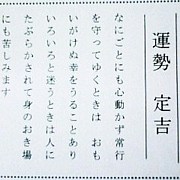 運勢　定吉
なにごとにも心動かず常行
を守ってゆくときは　おも
いがけぬ幸をうることあり
いろいろと迷うときは人に
たぶらかされて身のおき場
にも苦しみます